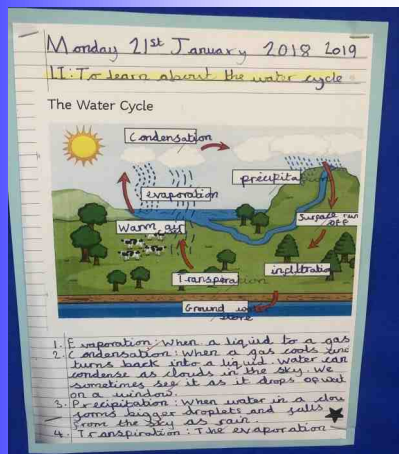 Monday 21st January 2018 2019
LI: To learn about the water cycle
The Water Cycle
Condensation
precipita
evaporation
Surface run
off
Warm air
infiltration
Transpiration
Ground water
store
1. Evaporation: When a liquid to a gas
2. Condensation: When a gas cools and
turns back into a liquid. Water can
condense as clouds in the sky. We
sometimes see it as it drops of wat
on a window.
3. Precipitation: When water in a clou
forms bigger droplets and falls
from the sky as rain.
4. Transpiration: The evaporation